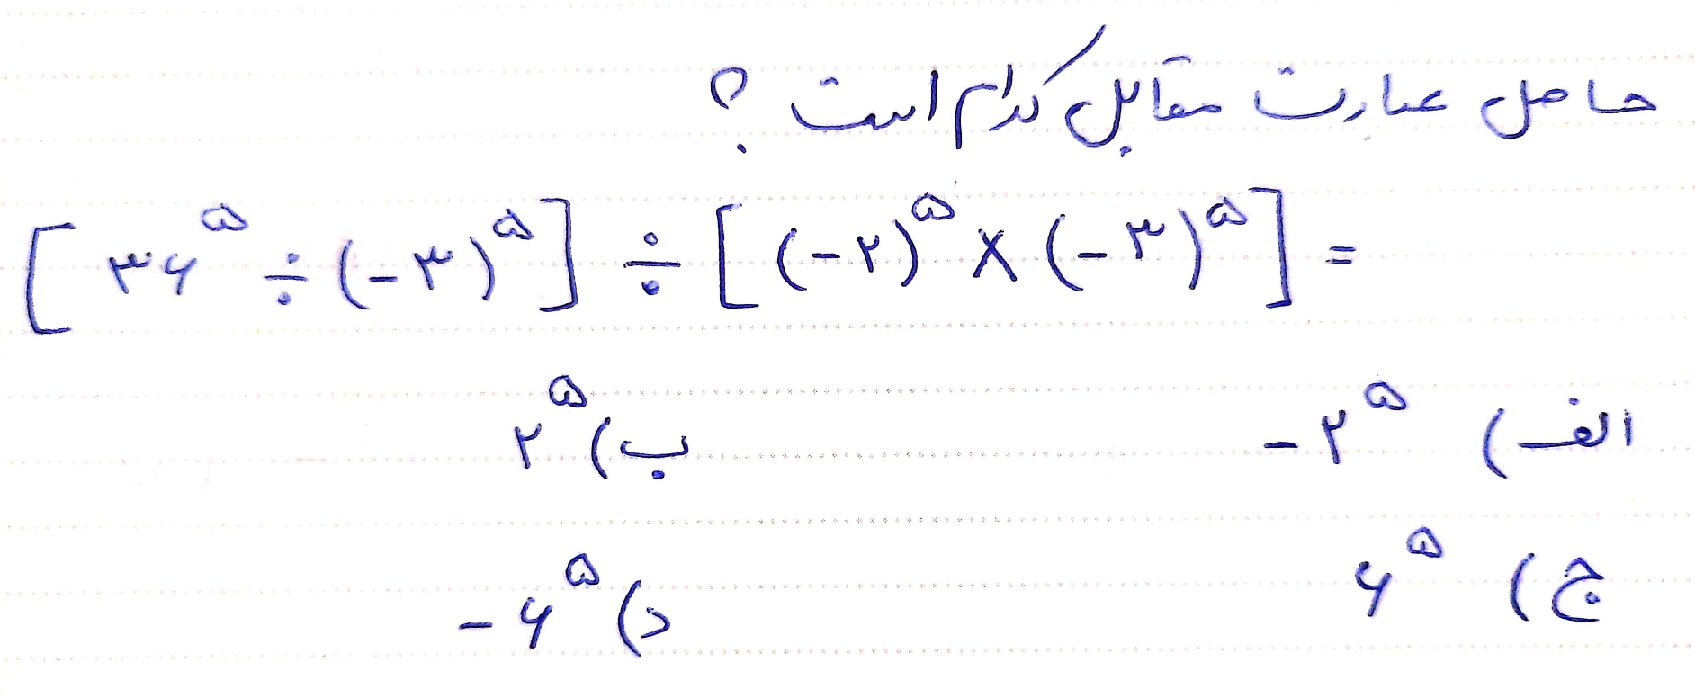 حاصل عبارت مقابل کدام است ؟
[۳۶^۵ ÷ (-۳)^۵] ÷ [(-۲)^۵ × (-۳)^۵] =
الف) -۲^۵ ب) ۲^۵
ج) ۶^۵ د) -۶^۵